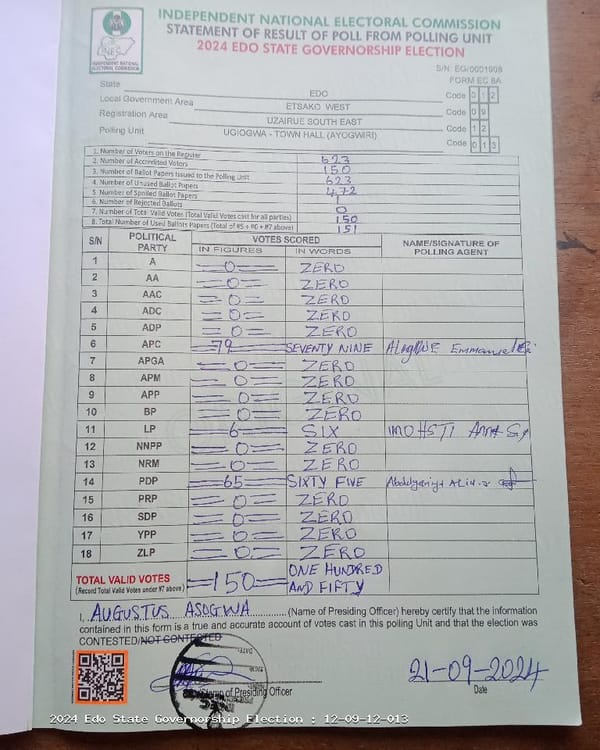 INDEPENDENT NATIONAL ELECTORAL COMMISSION
STATEMENT OF RESULT OF POLL FROM POLLING UNIT
2024 EDO STATE GOVERNORSHIP ELECTION
INDEPENDENT NATIONAL ELECTORAL COMMISSION
S/N: EG/0001908
FORM EC 8A
State EDO Code 0 1 2
Local Government Area ETSAKO WEST Code 0 9
Registration Area UZAIRUE SOUTH EAST Code 1 2
Polling Unit UGIOGWA - TOWN HALL (AYOGWIRI) Code 0 1 3
1. Number of Voters on the Register 623
2. Number of Accredited Voters 150
3. Number of Ballot Papers Issued to the Polling Unit 623
4. Number of Unused Ballot Papers 472
5. Number of Spoiled Ballot Papers 1
6. Number of Rejected Ballots 0
7. Number of Total Valid Votes (Total Valid Votes cast for all parties) 150
8. Total Number of Used Ballots Papers (Total of #5 + #6 + #7 above) 151
S/N POLITICAL PARTY VOTES SCORED NAME/SIGNATURE OF POLLING AGENT
IN FIGURES IN WORDS
1 A 0 ZERO
2 AA 0 ZERO
3 AAC 0 ZERO
4 ADC 0 ZERO
5 ADP 0 ZERO
6 APC 79 SEVENTY NINE Emmanuel
7 APGA 0 ZERO
8 APM 0 ZERO
9 APP 0 ZERO
10 BP 0 ZERO
11 LP 6 SIX
12 NNPP 0 ZERO
13 NRM 0 ZERO
14 PDP 65 SIXTY FIVE
15 PRP 0 ZERO
16 SDP 0 ZERO
17 YPP 0 ZERO
18 ZLP 0 ZERO
TOTAL VALID VOTES 150 ONE HUNDRED AND FIFTY
(Record Total Valid Votes under #7 above)
I, AUGUSTUS ASOGWA (Name of Presiding Officer) hereby certify that the information
contained in this form is a true and accurate account of votes cast in this polling Unit and that the election was
CONTESTED/NOT CONTESTED
21-09-2024
Stamp of Presiding Officer Date
2024 Edo State Governorship Election : 12-09-12-013